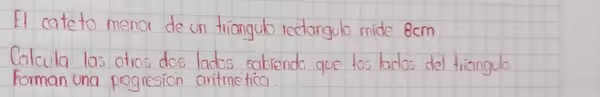 El cateto menor de un triangulo rectangulo mide 8cm
Calcula los otros dos lados, sabiendo que los lados del triangulo
Forman una progresión aritmetica.